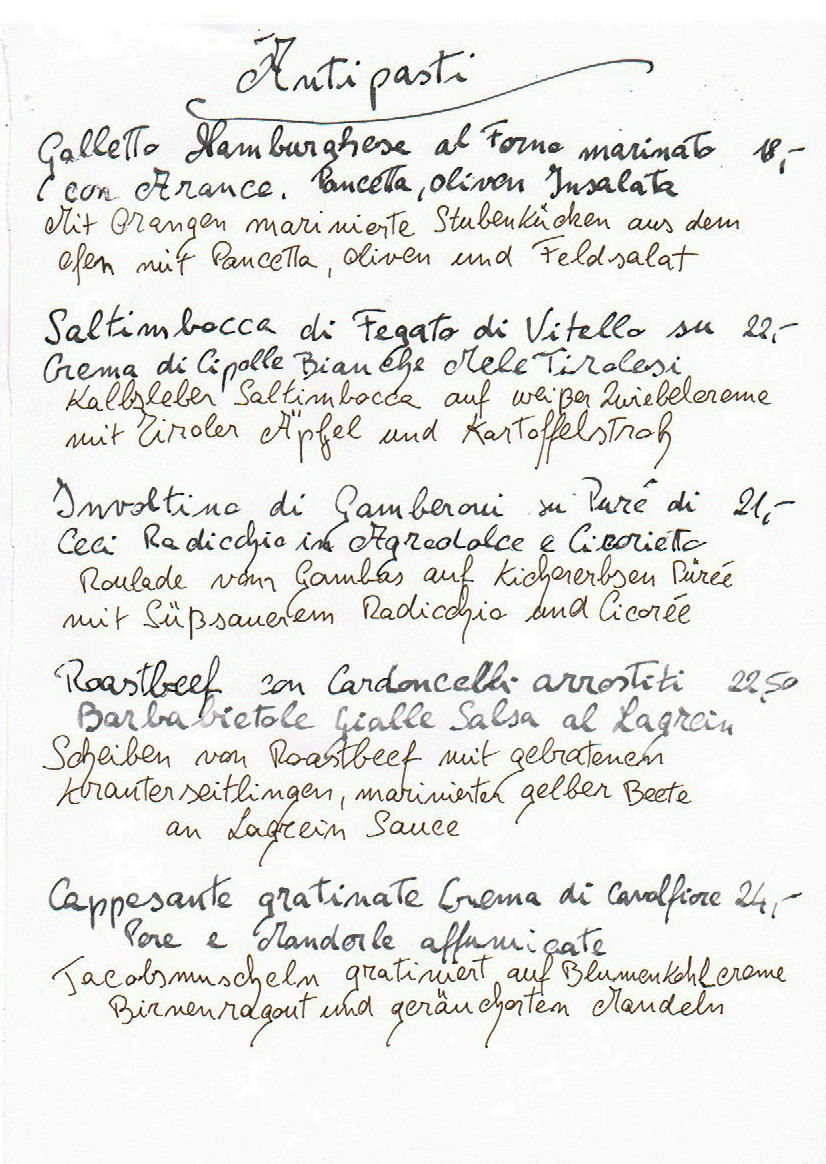 Antipasti
Galletto Hamburghese al Forno marinato 18,-
con Arance, Pancetta, Oliven Insalata
Mit Orangen marinierte Stubenkücken aus dem
Ofen mit Pancetta, Oliven und Feldsalat
Saltimbocca di Fegato di Vitello su 22,-
Crema di Cipolle Bianche Mele Tirolesi
Kalbsleber Saltimbocca auf weißer Zwiebelcreme
mit Tiroler Äpfel und Kartoffelstroh
Involtino di Gamberoni su Purê di 21,-
Ceci Radicchio in Agrodolce e Cicorietta
Roulade vom Gambas auf Kichererbsen Pürée
mit Süßsauerem Radicchio und Cicorée
Roastbeef con Cardoncelli arrostiti 22,50
Barbabietole Gialle Salsa al Lagrein
Scheiben von Roastbeef mit gebratenem
Kräuterseitlingen, marinierter gelber Beete
an Lagrein Sauce
Cappesante gratinate Crema di Cavolfiore 24,-
Pere e Mandorle affumicate
Jacobsmuscheln gratiniert auf Blumenkohlcreme
Birnenragout und geräucherten Mandeln